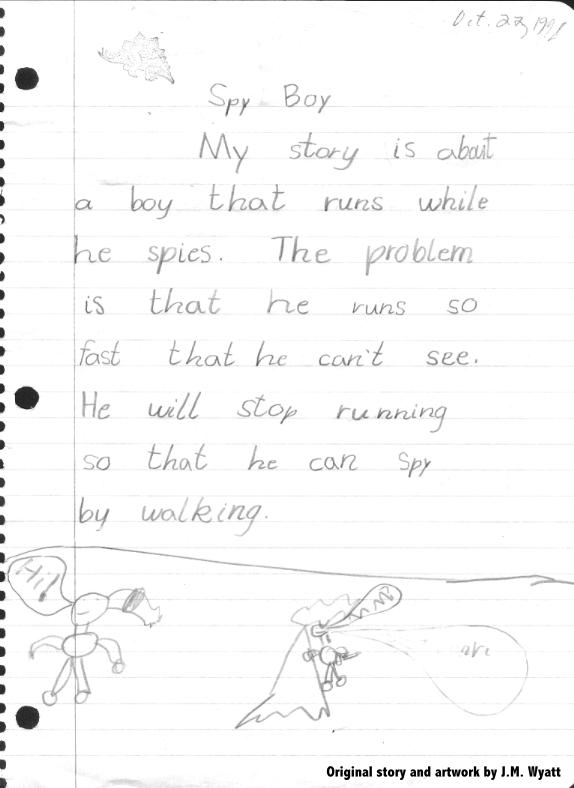 Oct. 23, 1991
Spy Boy
My story is about
a boy that runs while
he spies. The problem
is that he runs so
fast that he can't see.
He will stop running
so that he can spy
by walking.
Hi!
Original story and artwork by J.M. Wyatt